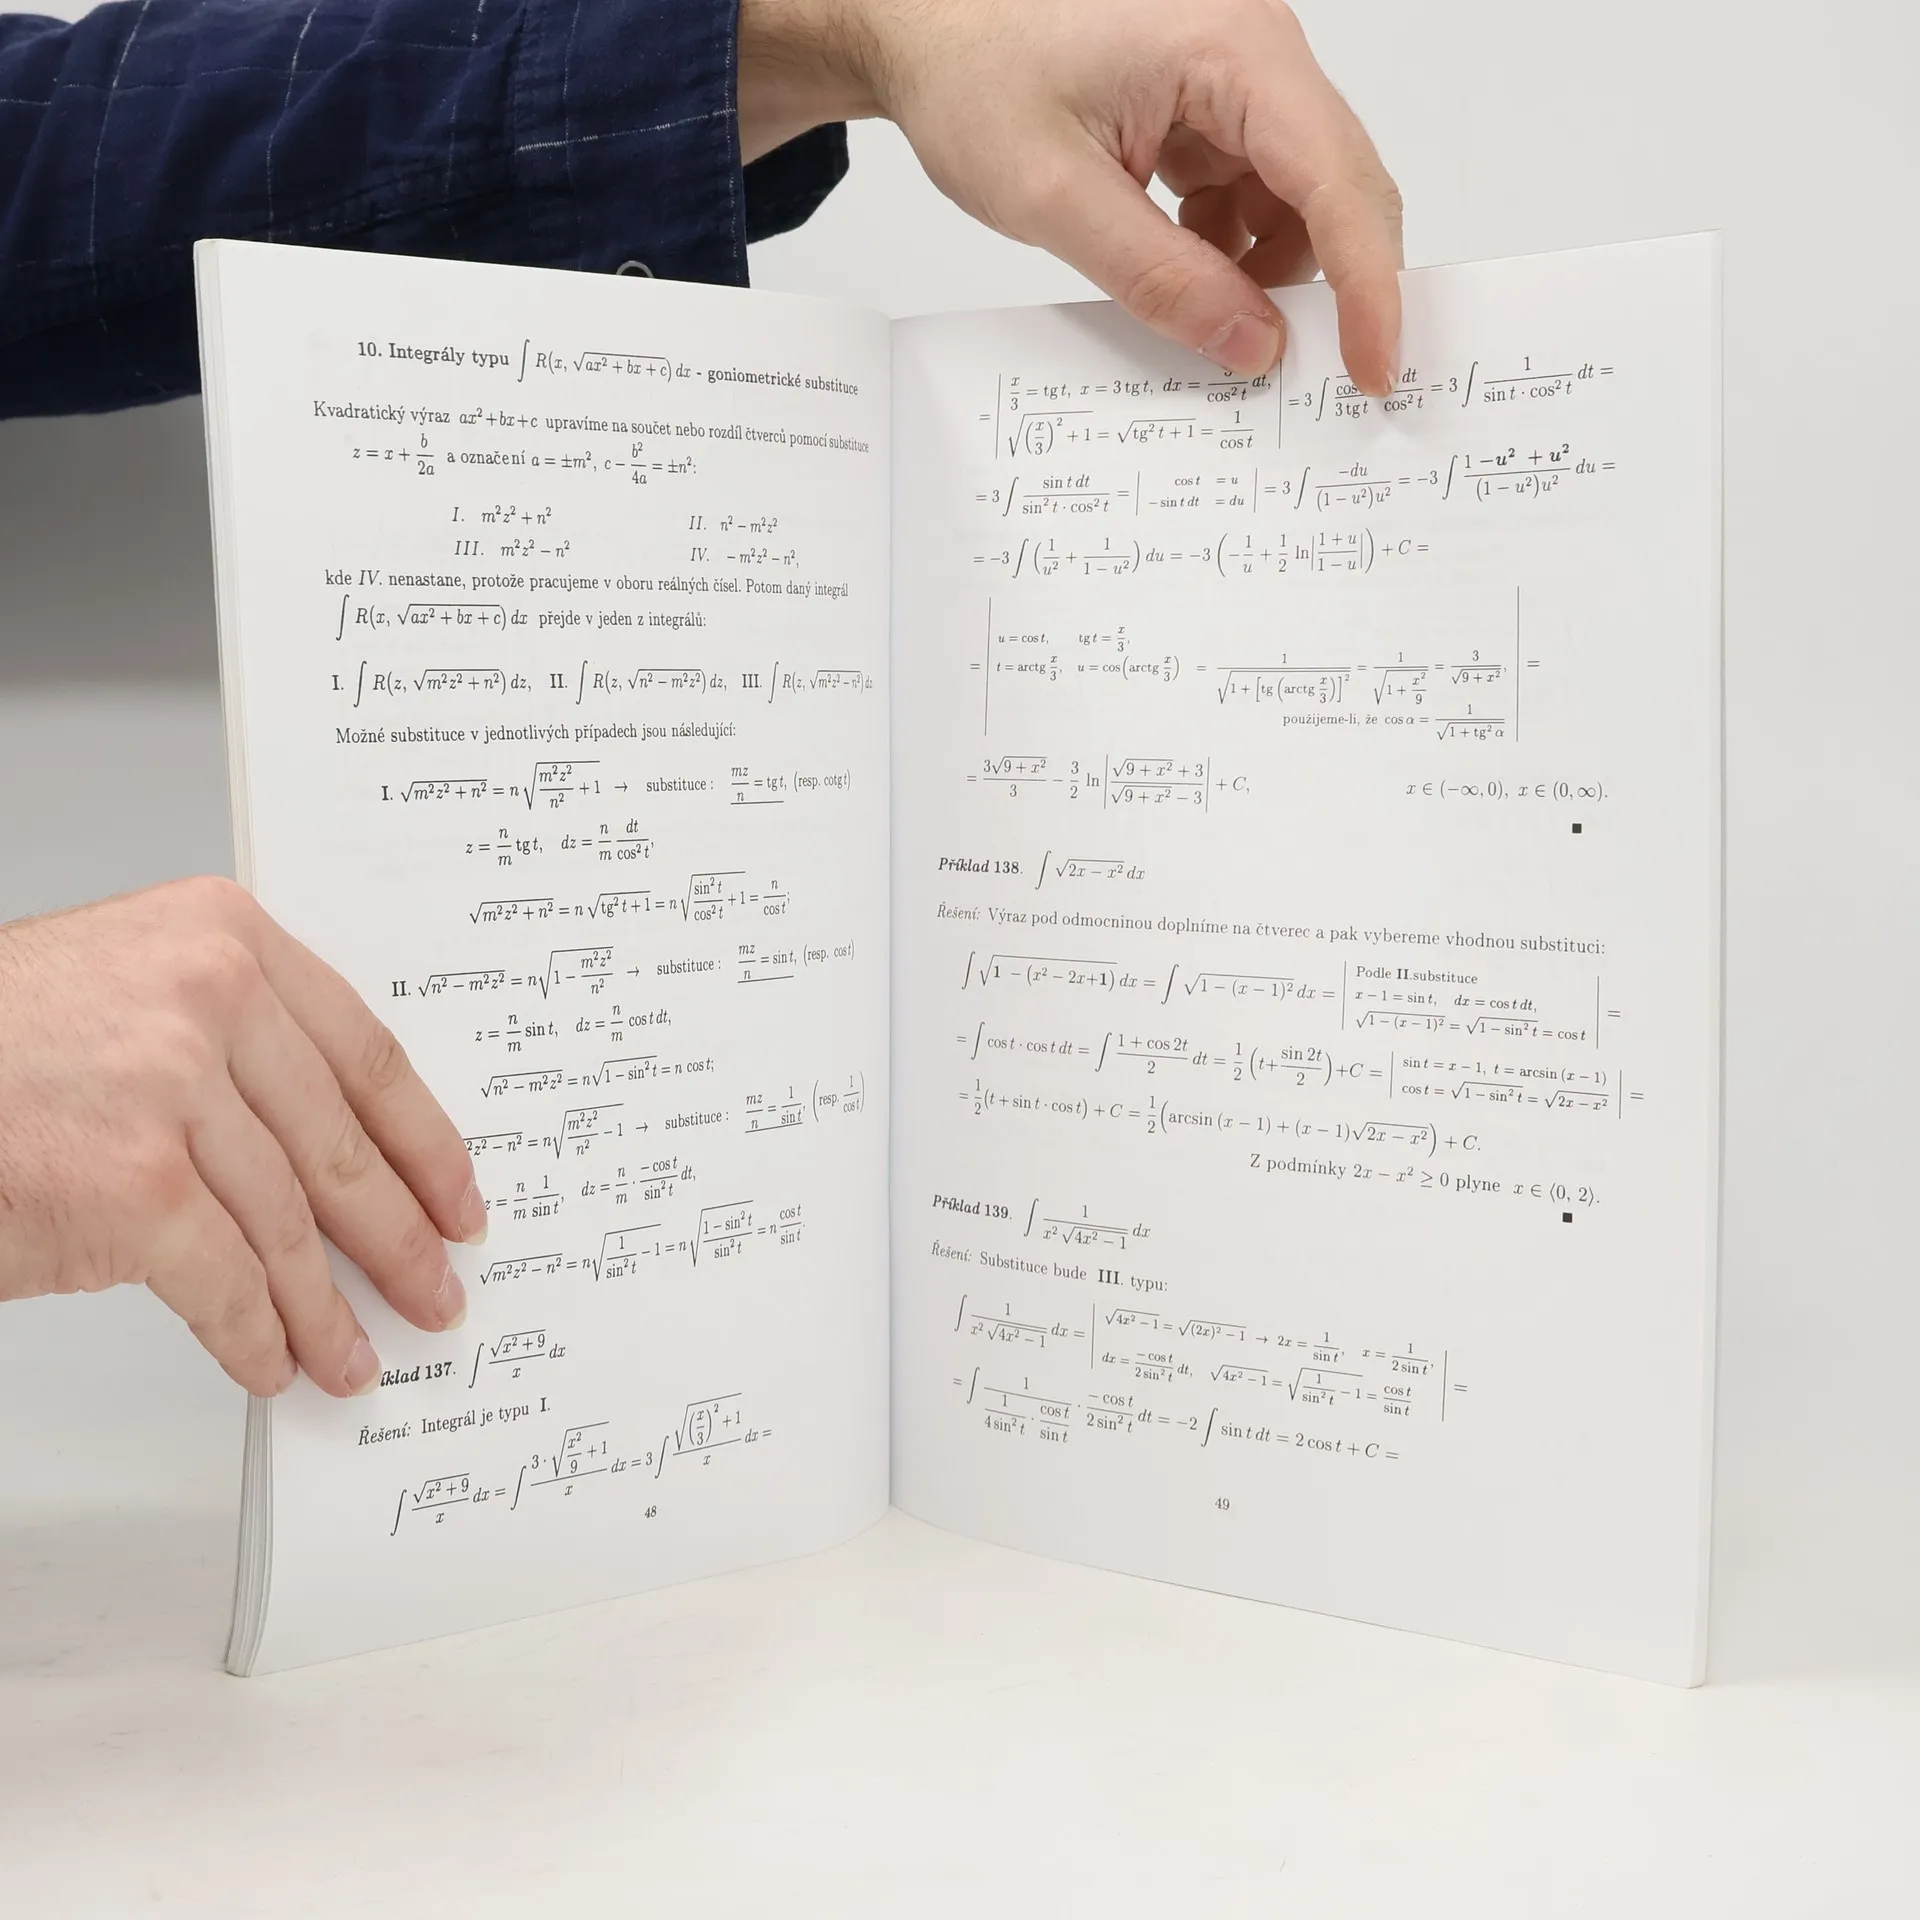 10. Integrály typu ∫ R(x, √(ax² + bx + c)) dx - goniometrické substituce
Kvadratický výraz ax² + bx + c upravíme na součet nebo rozdíl čtverců pomocí substituce
z = x + b/2a a označení a = ±m², c − b²/4a = ±n²:
I. m²z² + n² II. n² − m²z²
III. m²z² − n² IV. − m²z² − n²,
kde IV. nenastane, protože pracujeme v oboru reálných čísel. Potom daný integrál
∫ R(x, √(ax² + bx + c)) dx přejde v jeden z integrálů:
I. ∫ R(z, √(m²z² + n²)) dz, II. ∫ R(z, √(n² − m²z²)) dz, III. ∫ R(z, √(m²z² − n²)) dz
Možné substituce v jednotlivých případech jsou následující:
I. √(m²z² + n²) = n √(m²z²/n² + 1) → substituce : mz/n = tg t, (resp. cotg t)
z = n/m tg t, dz = n/m dt/cos² t,
√(m²z² + n²) = n √(tg² t + 1) = n √(sin² t/cos² t + 1) = n/cos t;
II. √(n² − m²z²) = n √(1 − m²z²/n²) → substituce : mz/n = sin t, (resp. cos t)
z = n/m sin t, dz = n/m cos t dt,
√(n² − m²z²) = n √(1 − sin² t) = n cos t;
²z² − n² = n √(m²z²/n² − 1) → substituce : mz/n = 1/sin t, (resp. 1/cos t)
z = n/m 1/sin t, dz = n/m · −cos t/sin² t dt,
√(m²z² − n²) = n √(1/sin² t − 1) = n √((1 − sin² t)/sin² t) = n cos t/sin t.
íklad 137. ∫ √(x² + 9)/x dx
Řešení: Integrál je typu I.
∫ √(x² + 9)/x dx = ∫ 3 · √(x²/9 + 1)/x dx = 3 ∫ √((x/3)² + 1)/x dx =
48
= | x/3 = tg t, x = 3 tg t, dx = 3/cos² t dt, √((x/3)² + 1) = √(tg² t + 1) = 1/cos t | = 3 ∫ cos/3 tg t dt/cos² t = 3 ∫ 1/(sin t · cos² t) dt =
= 3 ∫ sin t dt/(sin² t · cos² t) = | cos t = u −sin t dt = du | = 3 ∫ −du/((1 − u²)u²) = −3 ∫ (1 − u² + u²)/((1 − u²)u²) du =
= −3 ∫ (1/u² + 1/(1 − u²)) du = −3 (−1/u + 1/2 ln|(1 + u)/(1 − u)|) + C =
u = cos t, tg t = x/3,
= | t = arctg x/3, u = cos(arctg x/3) = 1/√(1 + [tg (arctg x/3)]²) = 1/√(1 + x²/9) = 3/√(9 + x²), | =
použijeme-li, že cos α = 1/√(1 + tg² α)
= 3√(9 + x²)/3 − 3/2 ln |(√(9 + x²) + 3)/(√(9 + x²) − 3)| + C, x ∈ (−∞, 0), x ∈ (0, ∞).
■
Příklad 138. ∫ √(2x − x²) dx
Řešení: Výraz pod odmocninou doplníme na čtverec a pak vybereme vhodnou substituci:
∫ √(1 − (x² − 2x+1)) dx = ∫ √(1 − (x − 1)²) dx = | Podle II.substituce x − 1 = sin t, dx = cos t dt, √(1 − (x − 1)²) = √(1 − sin² t) = cos t | =
= ∫ cos t · cos t dt = ∫ (1 + cos 2t)/2 dt = 1/2 (t + sin 2t/2) + C = | sin t = x − 1, t = arcsin (x − 1) cos t = √(1 − sin² t) = √(2x − x²) | =
= 1/2 (t + sin t · cos t) + C = 1/2 (arcsin (x − 1) + (x − 1)√(2x − x²)) + C.
Z podmínky 2x − x² ≥ 0 plyne x ∈ ⟨0, 2⟩.
■
Příklad 139. ∫ 1/(x² √(4x² − 1)) dx
Řešení: Substituce bude III. typu:
∫ 1/(x² √(4x² − 1)) dx = | √(4x² − 1) = √((2x)² − 1) → 2x = 1/sin t, x = 1/(2 sin t), dx = −cos t/(2 sin² t) dt, √(4x² − 1) = √(1/sin² t − 1) = cos t/sin t | =
= ∫ 1/(1/(4 sin² t) · cos t/sin t) · −cos t/(2 sin² t) dt = −2 ∫ sin t dt = 2 cos t + C =
49